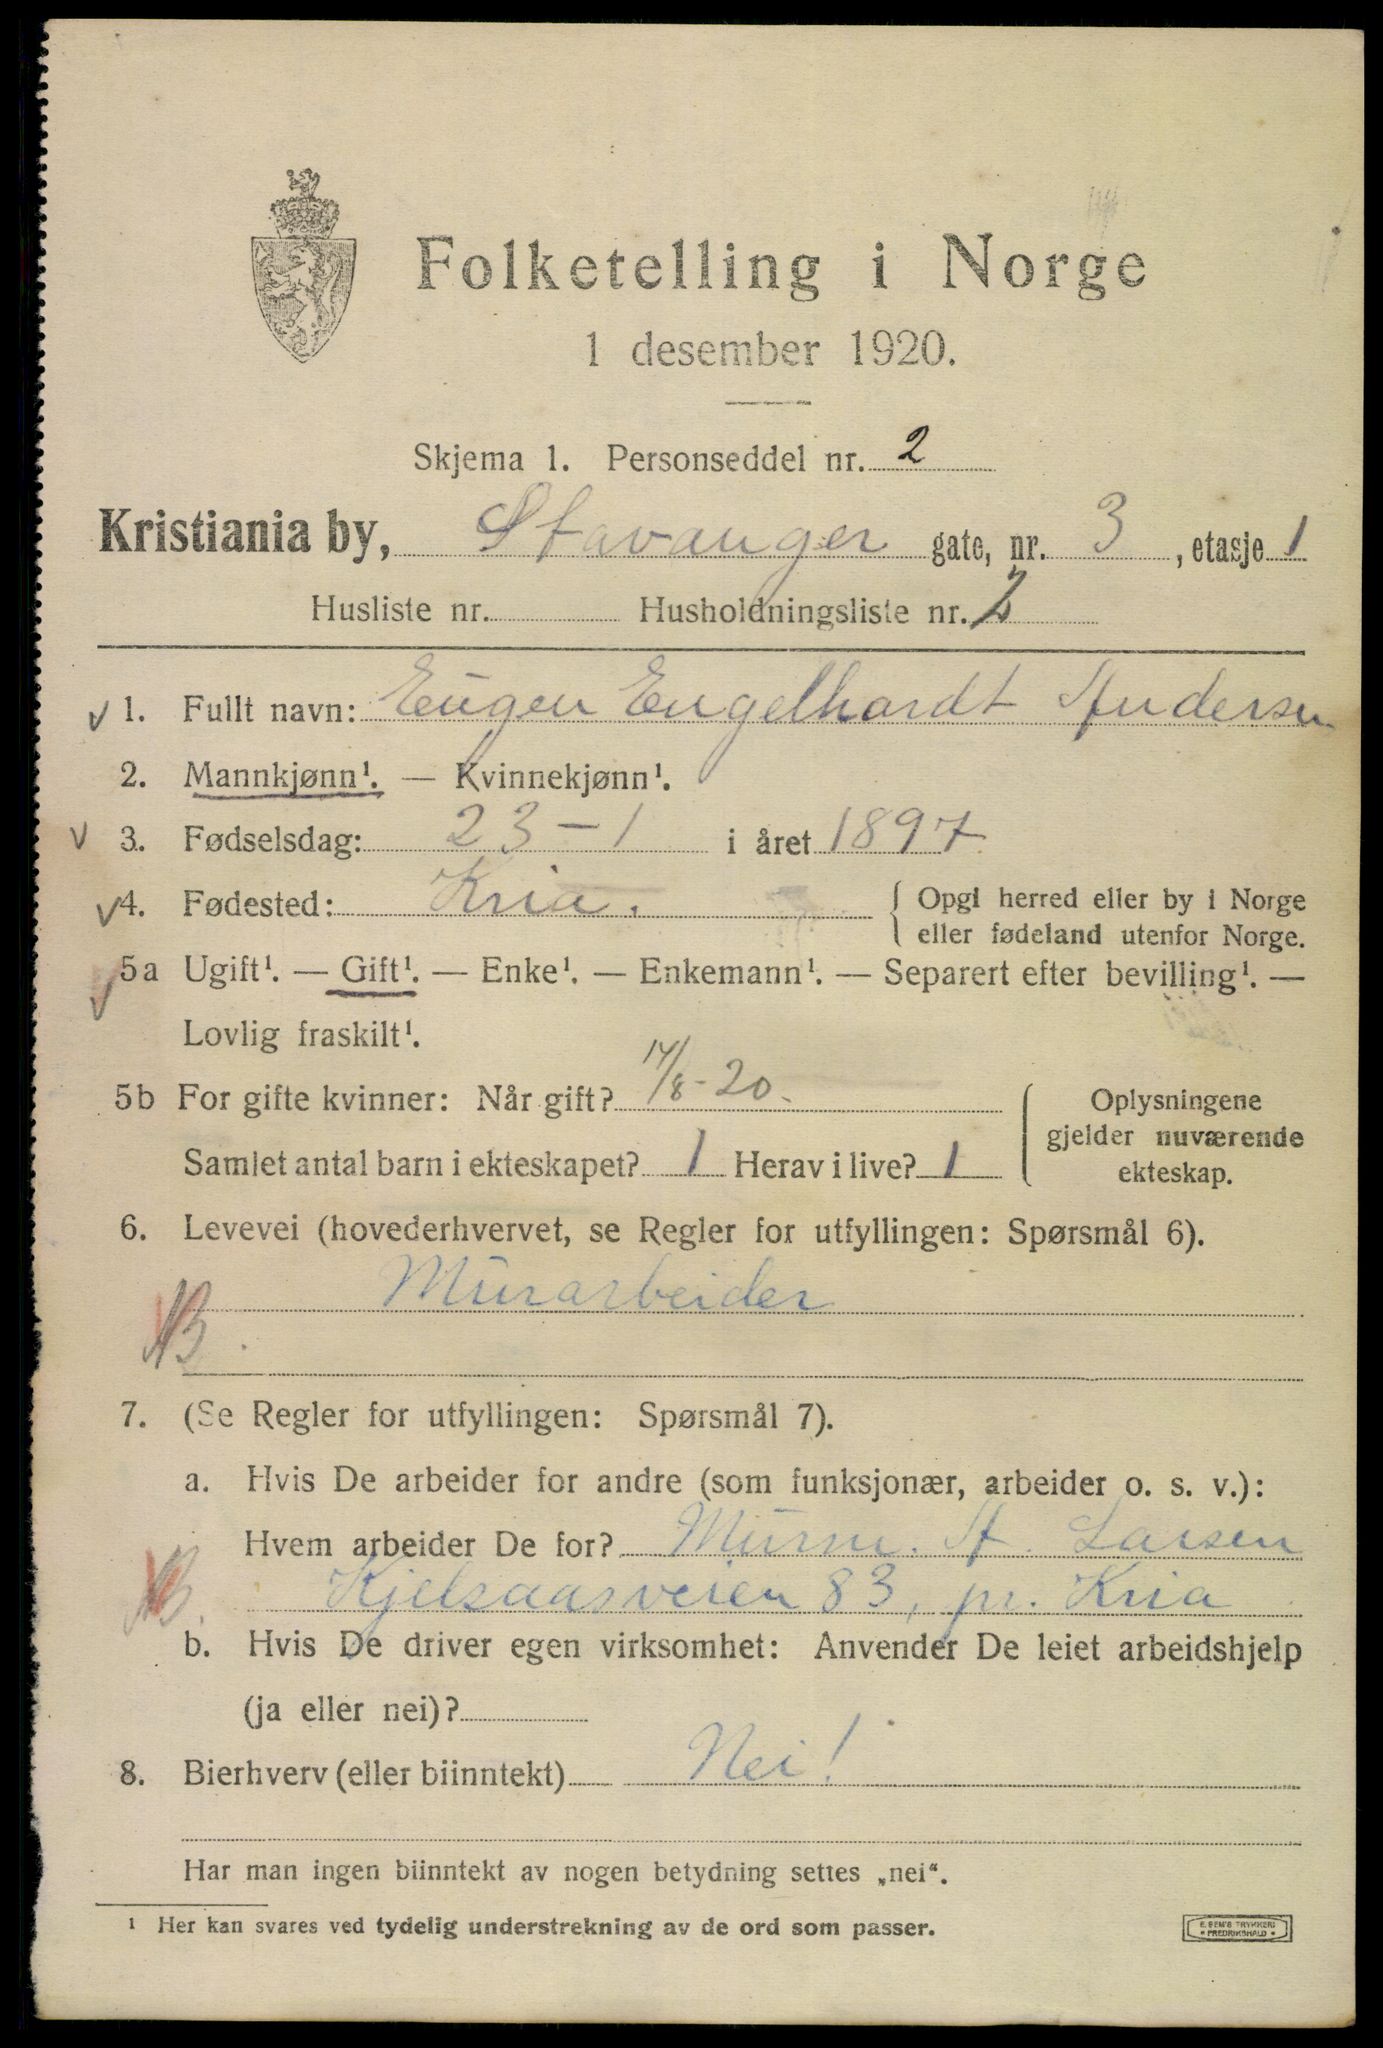 Folketelling i Norge
1 desember 1920.
Skjema 1. Personseddel nr. 2
Kristiania by, Stavanger gate, nr. 3, etasje 1
Husliste nr. Husholdningsliste nr. 2
1. Fullt navn: Eugen Engelhardt Andersen
2. Mannkjønn¹. — Kvinnekjønn¹.
3. Fødselsdag: 23-1 i året 1897
4. Fødested: Kria. { Opgi herred eller by i Norge
eller fødeland utenfor Norge.
5a Ugift¹. — Gift¹. — Enke¹. — Enkemann¹. — Separert efter bevilling¹. —
Lovlig fraskilt¹.
5b For gifte kvinner: Når gift? 14/8-20. { Oplysningene
gjelder nuværende
Samlet antal barn i ekteskapet? 1 Herav i live? 1 ekteskap.
6. Levevei (hovederhvervet, se Regler for utfyllingen: Spørsmål 6).
Murarbeider
7. (Se Regler for utfyllingen: Spørsmål 7).
a. Hvis De arbeider for andre (som funksjonær, arbeider o. s. v.):
Hvem arbeider De for? Murm. A. Larsen
Kjelsaasveien 83, pr. Kria
b. Hvis De driver egen virksomhet: Anvender De leiet arbeidshjelp
(ja eller nei)?
8. Bierhverv (eller biinntekt) Nei!
Har man ingen biinntekt av nogen betydning settes „nei“.
¹ Her kan svares ved tydelig understrekning av de ord som passer.
E. SEM'S TRYKKERI
* FREDRIKSHALD *